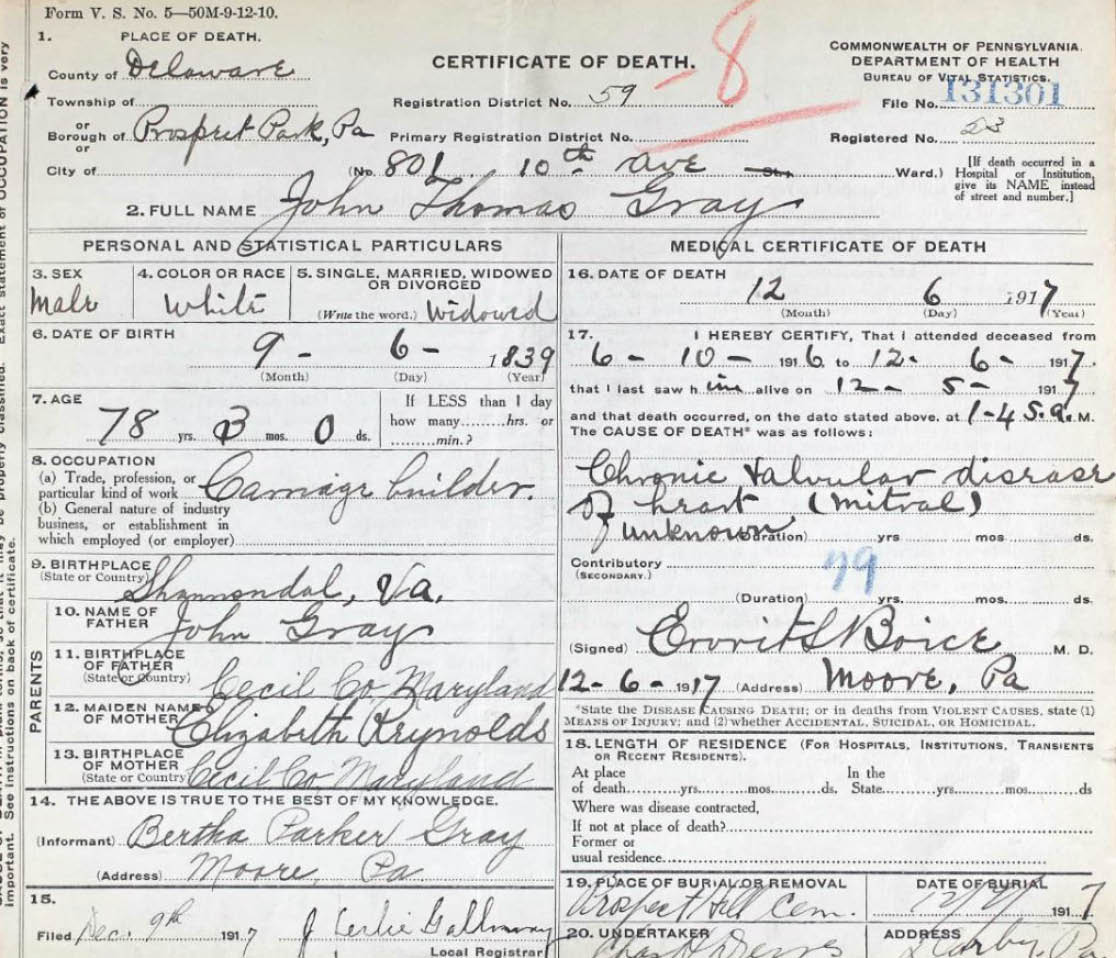 Form V. S. No. 5—50M-9-12-10.
1. PLACE OF DEATH.
County of Delaware
Township of
or
Borough of Prospect Park, Pa
or
City of
CERTIFICATE OF DEATH.
Registration District No. 59
Primary Registration District No.
(No. 801 10th ave Str. Ward.)
8
COMMONWEALTH OF PENNSYLVANIA.
DEPARTMENT OF HEALTH
BUREAU OF VITAL STATISTICS.
File No. 131301
Registered No. 23
[If death occurred in a
Hospital or Institution,
give its NAME instead
of street and number.]
2. FULL NAME John Thomas Gray
PERSONAL AND STATISTICAL PARTICULARS
3. SEX
Male
4. COLOR OR RACE
White
5. SINGLE, MARRIED, WIDOWED
OR DIVORCED
(Write the word.) Widowed
6. DATE OF BIRTH
9 - 6 - 1839
(Month) (Day) (Year)
7. AGE
78 yrs. 3 mos. 0 ds.
If LESS than 1 day
how many hrs. or
min.?
8. OCCUPATION
(a) Trade, profession, or
particular kind of work Carriage builder.
(b) General nature of industry
business, or establishment in
which employed (or employer)
9. BIRTHPLACE
(State or Country) Shannondal, Va.
PARENTS
10. NAME OF
FATHER John Gray
11. BIRTHPLACE
OF FATHER
(State or Country) Cecil Co. Maryland
12. MAIDEN NAME
OF MOTHER Elizabeth Reynolds
13. BIRTHPLACE
OF MOTHER
(State or Country) Cecil Co. Maryland
14. THE ABOVE IS TRUE TO THE BEST OF MY KNOWLEDGE.
(Informant) Bertha Parker Gray
(Address) Moore, Pa
15.
Filed Dec. 9th 1917 J Leslie Galloway
Local Registrar
MEDICAL CERTIFICATE OF DEATH
16. DATE OF DEATH
12 6 1917
(Month) (Day) (Year)
17. I HEREBY CERTIFY, That I attended deceased from
6 - 10 - 1916 to 12 - 6 - 1917.
that I last saw him alive on 12 - 5 - 1917
and that death occurred, on the date stated above, at 1-45 a.M.
The CAUSE OF DEATH* was as follows:
Chronic valvular disease
of heart (mitral)
unknown (Duration) yrs mos ds.
Contributory
(SECONDARY.)
79
(Duration) yrs. mos. ds.
(Signed) Boice M. D.
12-6-1917 (Address) Moore, Pa
*State the DISEASE CAUSING DEATH; or in deaths from VIOLENT CAUSES, state (1)
MEANS OF INJURY; and (2) whether ACCIDENTAL, SUICIDAL, OR HOMICIDAL.
18. LENGTH OF RESIDENCE (FOR HOSPITALS, INSTITUTIONS, TRANSIENTS
OR RECENT RESIDENTS).
At place
of death yrs. mos. ds.
In the
State yrs. mos. ds
Where was disease contracted,
If not at place of death?
Former or
usual residence
19. PLACE OF BURIAL OR REMOVAL
Prospect Hill Cem.
DATE OF BURIAL
12/9/ 1917
20. UNDERTAKER
ADDRESS
Darby, Pa
important. See instructions on back of certificate.
be properly classified. Exact statement of OCCUPATION is very